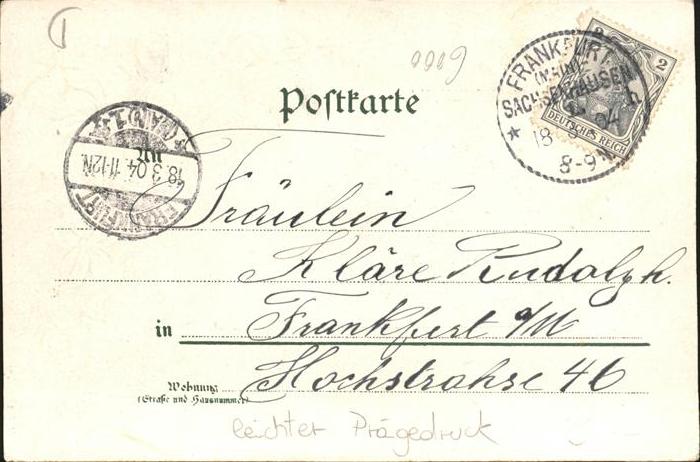 0009
Postkarte
2
DEUTSCHES REICH
FRANKFURT
(MAIN)
SACHSENHAUSEN
18 3 04
8-9 N
FRANKFURT
18.3.04.11-12N.
(MAIN) 1.
An
Fräulein
Kläre Rudolph.
in Frankfurt a/M
Wohnung Hochstrahse 46
(Straße und Hausnummer)
leichter Prägedruck